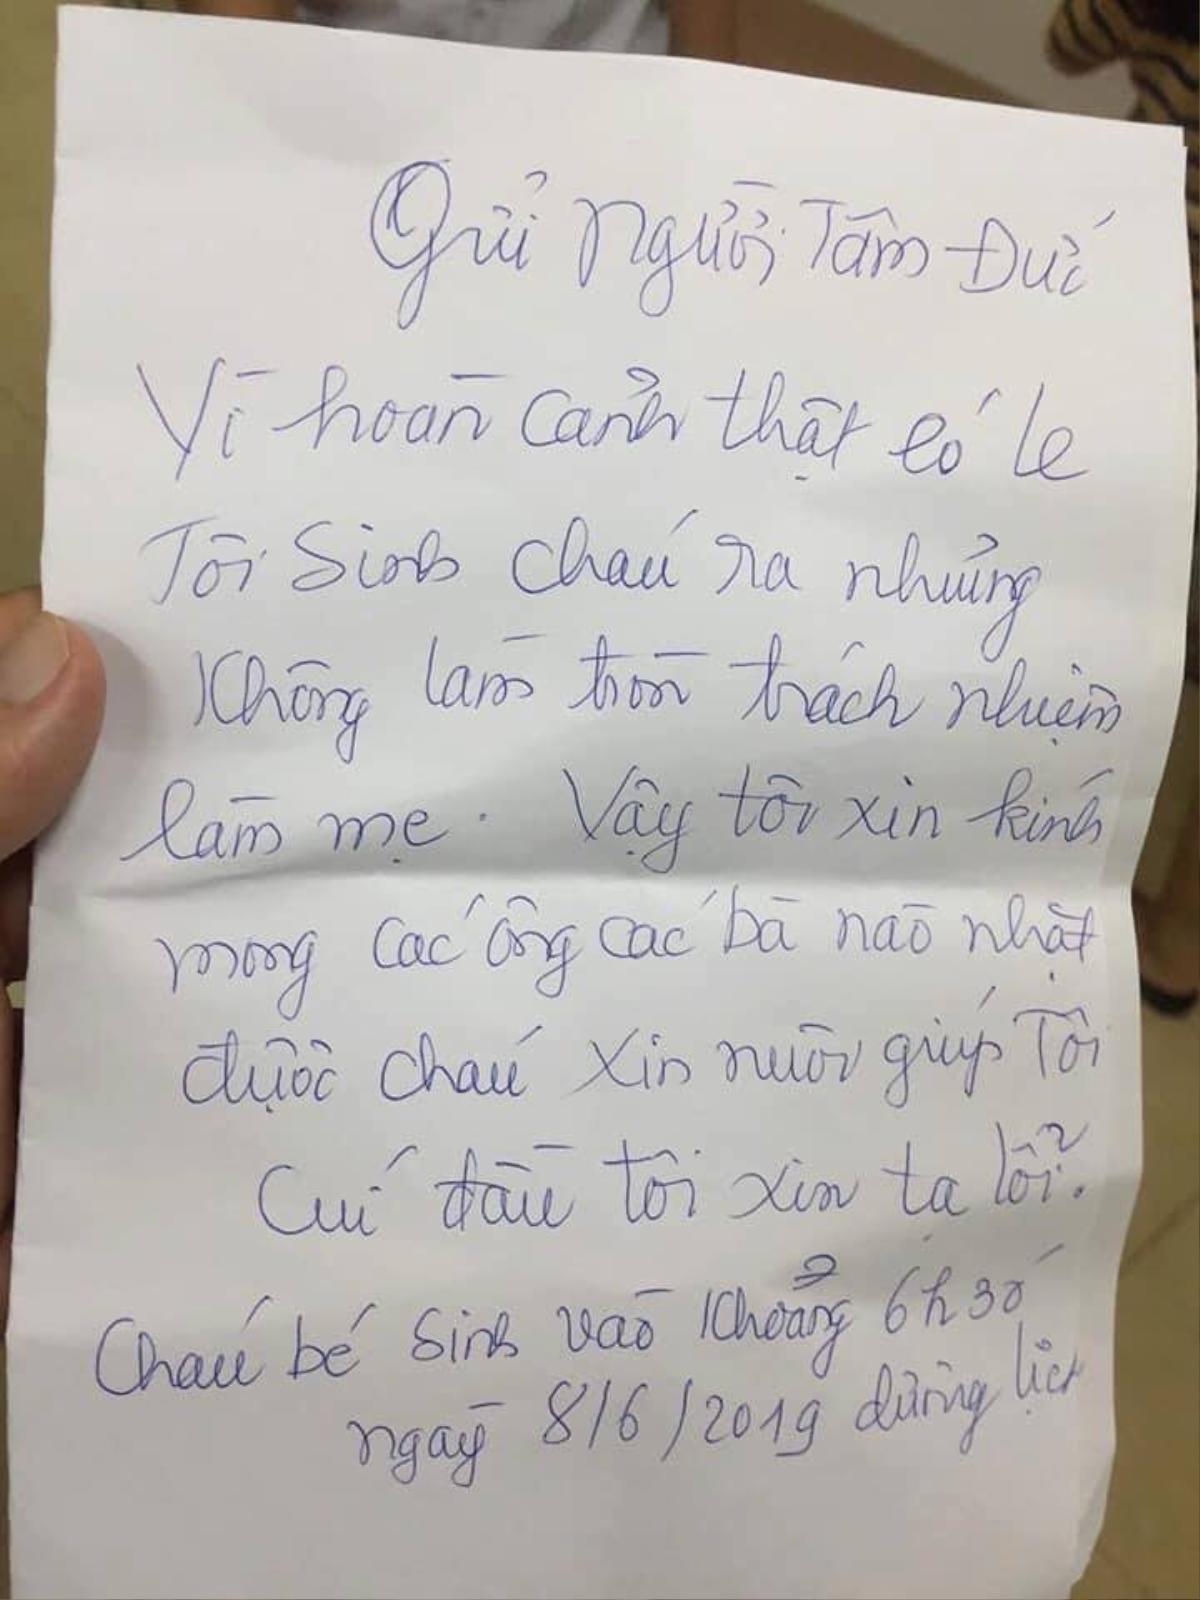 Gửi Người Tâm Đức
Vì hoàn cảnh thật éo le
Tôi Sinh cháu ra nhưng
Không làm tròn trách nhiệm
làm mẹ. Vậy tôi xin kính
mong các ông các bà nào nhặt
được cháu xin nuôi giúp Tôi
Cúi đầu tôi xin tạ lỗi.
Cháu bé sinh vào khoảng 6h30
ngày 8/6/2019 dương lịch